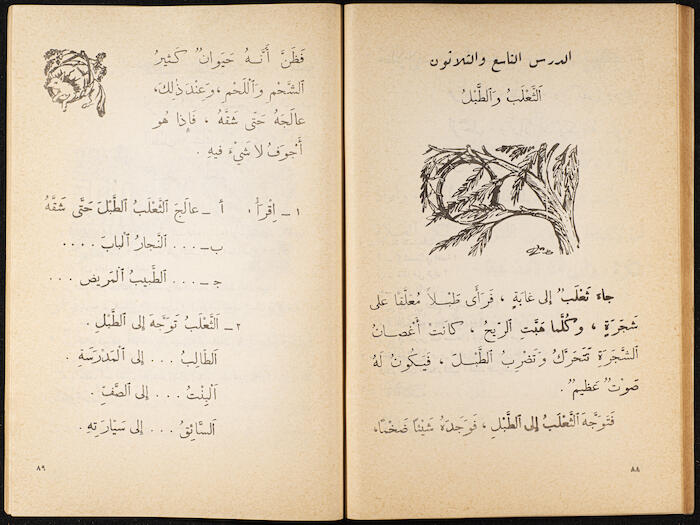 الدرس التاسع والثلاثون
الثَّعْلَبُ وَالطَّبْلُ
جاءَ ثَعْلَبٌ إِلى غابَةٍ ، فَرَأَى طَبْلاً مُعَلَّقًا عَلى
شَجَرَةٍ ، وَكُلَّما هَبَّتِ الرّيحُ ، كانَتْ أَغْصانُ
الشَّجَرَةِ تَتَحَرَّكُ وَتَضْرِبُ الطَّبْلَ ، فَيَكُونُ لَهُ
صَوْتٌ عَظيمٌ .
فَتَوَجَّهَ الثَّعْلَبُ إِلى الطَّبْلِ ، فَوَجَدَهُ شَيْئًا ضَخْمًا،
٨٨
فَظَنَّ أَنَّهُ حَيَوانٌ كَثيرُ
الشَّحْمِ وَاللَّحْمِ، وَعِنْدَ ذٰلِكَ،
عالَجَهُ حَتّى شَقَّهُ ، فَإِذا هُو
أَجْوَفُ لا شَيْءَ فيهِ .
١ ــ اِقْرَأْ : أ ــ عالَجَ الثَّعْلَبُ الطَّبْلَ حَتّى شَقَّهُ
ب ــ ... النَّجارُ البابَ ....
جـ ــ ... الطَّبيبُ المَريضَ ...
٢ ــ الثَّعْلَبُ تَوَجَّهَ إِلى الطَّبْلِ .
الطّالِبُ ... إِلى المَدْرَسَةِ .
البِنْتُ ... إِلى الصَّفِّ .
السّائِقُ ... إِلى سَيّارَتِهِ .
٨٩